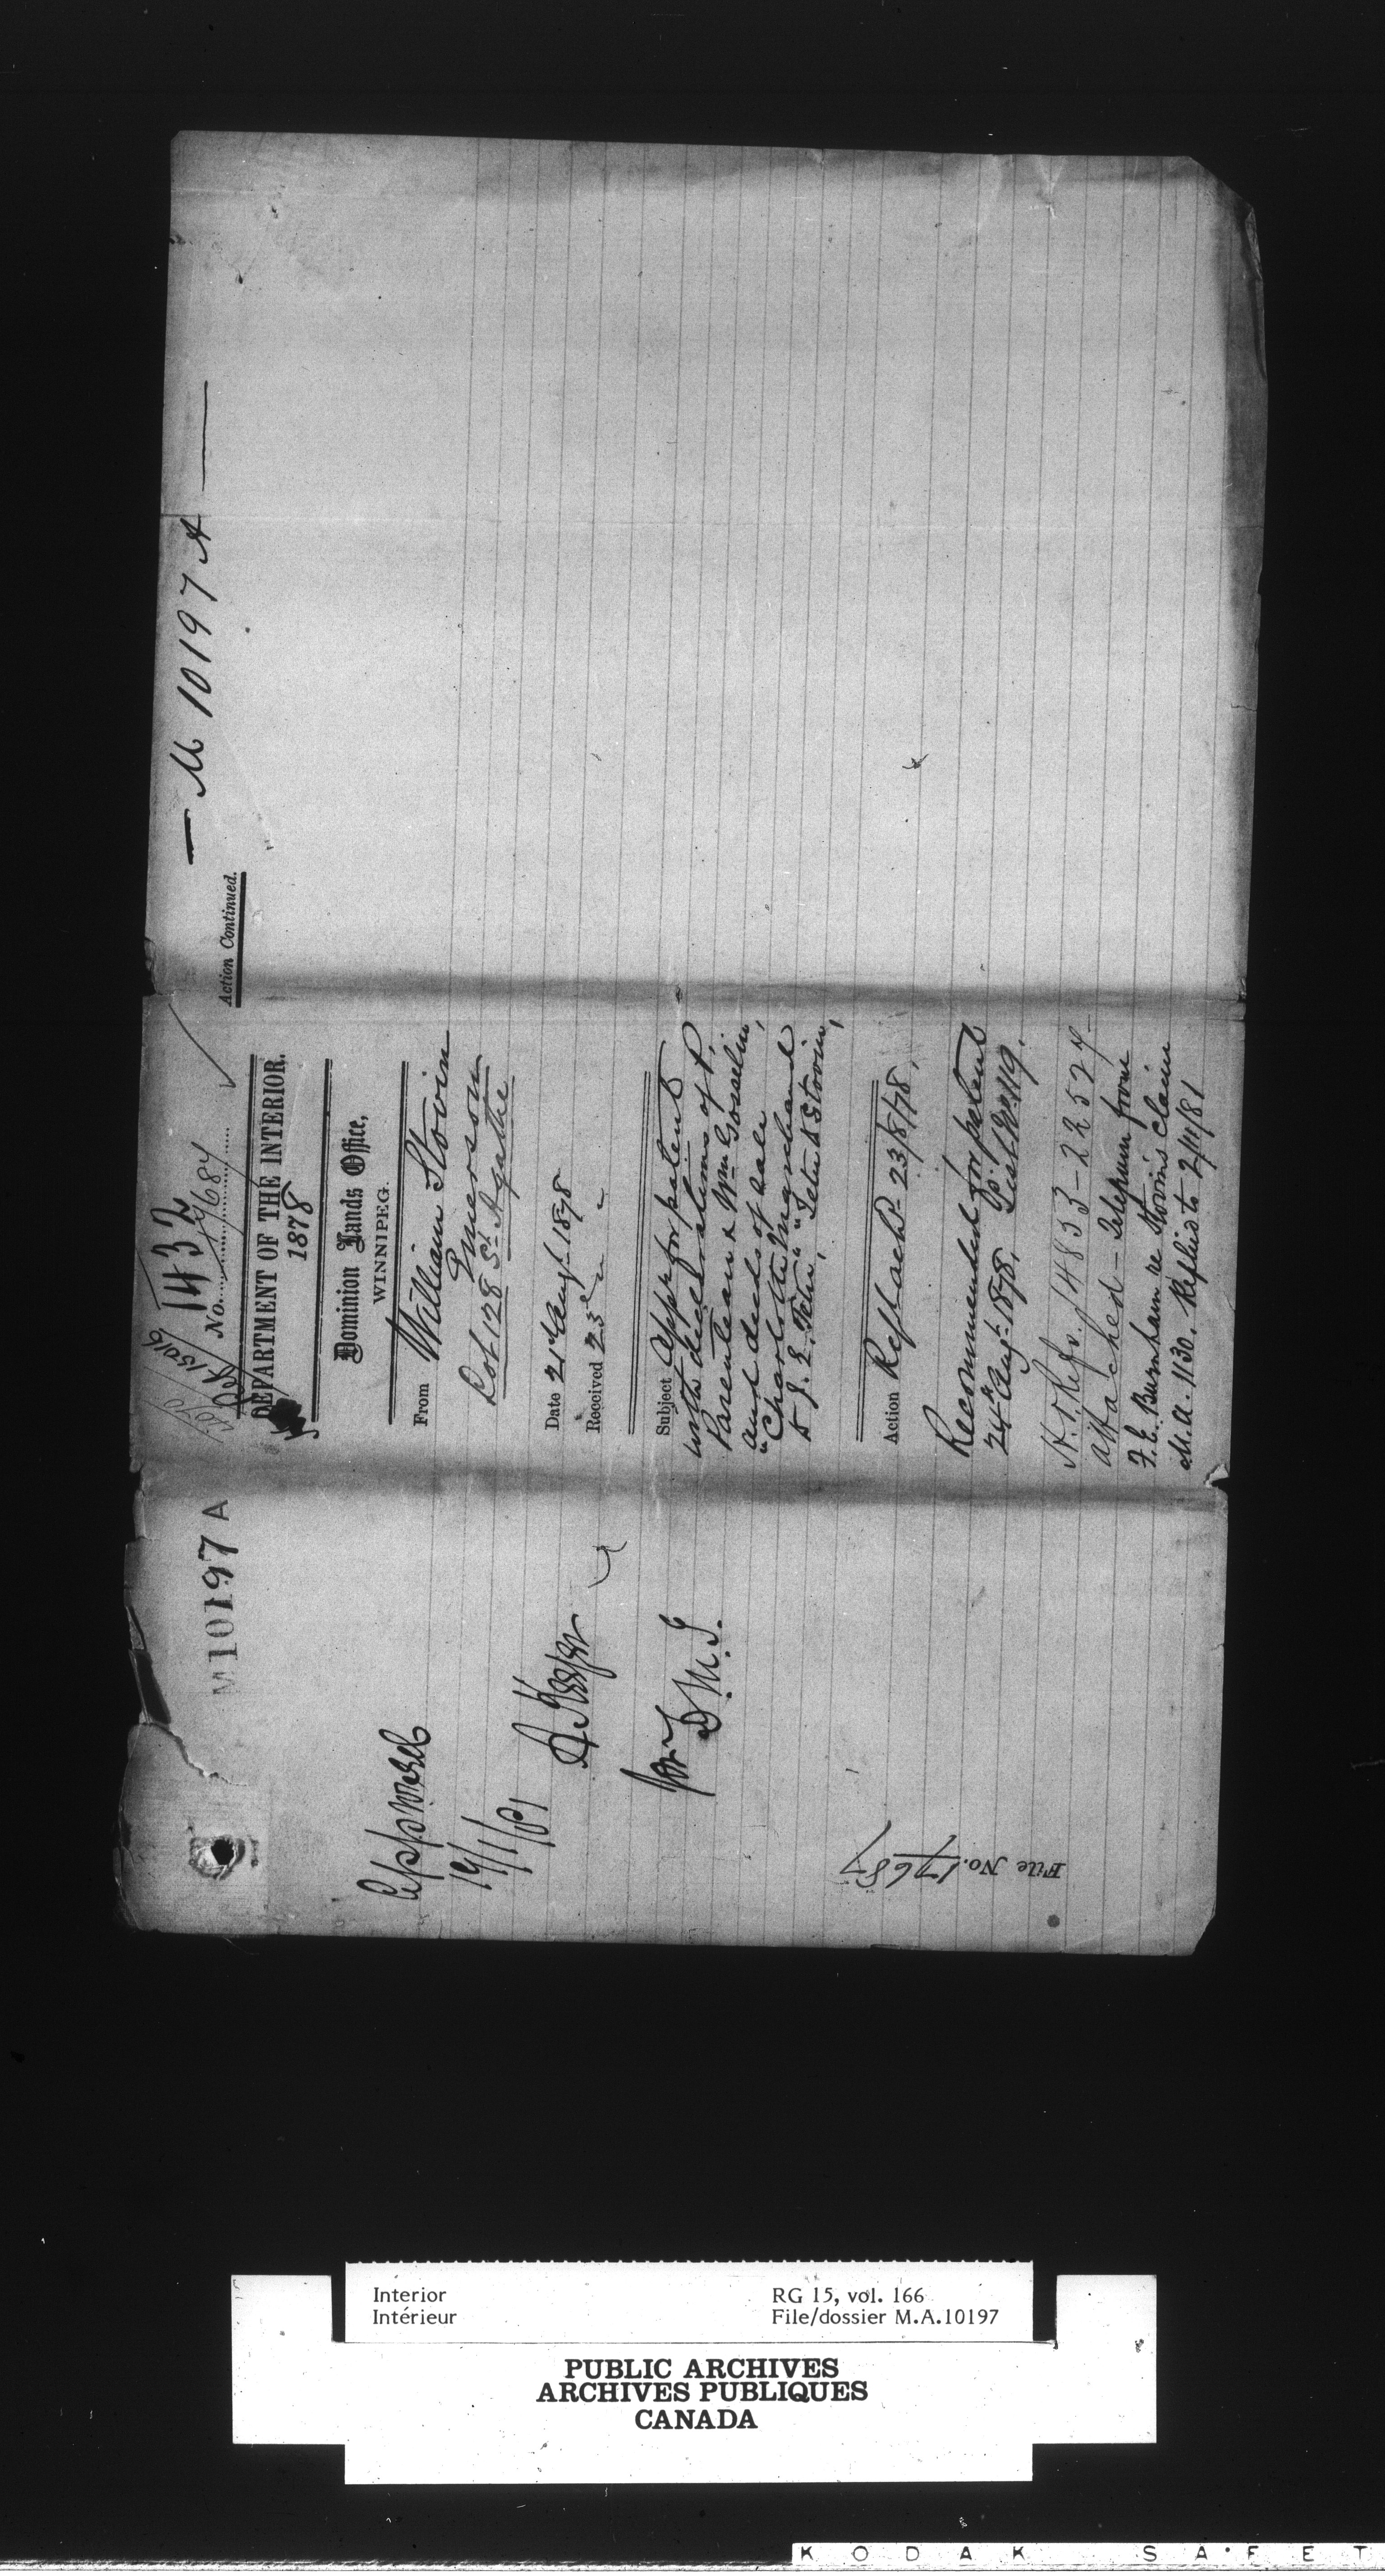 M 10197 A
Approved
14/1/81
for D. M. I.
File No. 17687
1432
No. 17687
DEPARTMENT OF THE INTERIOR.
1878
Dominion Lands Office,
WINNIPEG.
From William Stovin
Emerson
Lot 128 St. Agathe
Date 21st Augt 1878
Received 23 " "
Subject Appn for patent
with declarations of P.
Parenteau & Wm Gosselin,
and deeds of sale,
"Charlotte Marchand
to J. E. Tetu, " " Tetu to Stovin,
Action
23/8/78.
Recommended for patent
24th Augt 1878.
No 119.
H.O. Refs. 14853-22527-
attached - Telegram from
F. E. Burnham re Stovin's claim
M.A. 1130. Replied to 2/4/81
Action Continued.
M 10197 A
Interior
Intérieur
RG 15, vol. 166
File/dossier M.A.10197
PUBLIC ARCHIVES
ARCHIVES PUBLIQUES
CANADA
KODAK SAFET